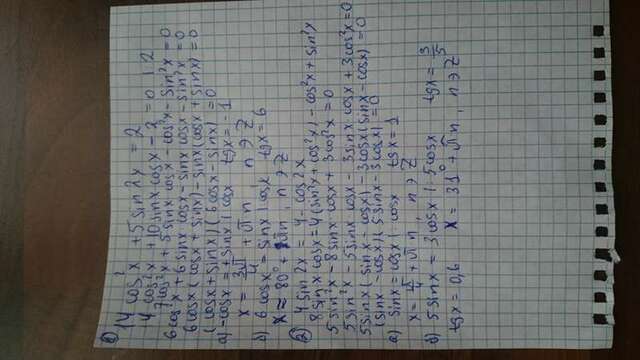 1) 14 cos²x + 5 sin 2x = 2
14 cos²x + 10 sinx cosx - 2 = 0 1:2
7 cos²x + 5 sinx cosx - cos²x - sin²x = 0
6 cos²x + 6 sinx cosx - sinx cosx - sin²x = 0
6 cosx (cosx + sinx) - sinx (cosx + sinx) = 0
(cosx + sinx) (6 cosx - sinx) = 0
а) -cosx = + sinx | cosx tgx = -1
x = 3π/4 + πn n ∋ Z
б) 6 cosx = sinx | cosx tgx = 6
x ≈ 80° + πn, n ∋ Z
2) 4 sin 2x = 4 - cos 2x
8 sinx cosx = 4 (sin²x + cos²x) - cos²x + sin²x
5 sin²x - 8 sinx cosx + 3 cos²x = 0
5 sin²x - 5 sinx cosx - 3 sinx cosx + 3 cos²x = 0
5 sinx (sinx - cosx) - 3 cosx (sinx - cosx) = 0
(sinx - cosx) (5 sinx - 3 cosx) = 0
а) sinx = cosx | : cosx tgx = 1
x = π/4 + πn, n ∋ Z
б) 5 sinx = 3 cosx | : 5 cosx tgx = 3/5
tgx = 0,6 x = 31° + πn, n ∋ Z